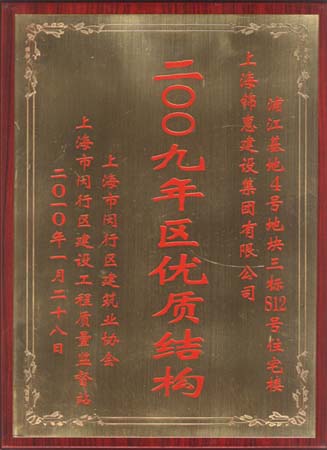 浦江基地4号地块三标S12号住宅楼
上海韩惠建设集团有限公司
二〇〇九年区优质结构
上海市闵行区建筑业协会
上海市闵行区建设工程质量监督站
二〇一〇年一月二十八日